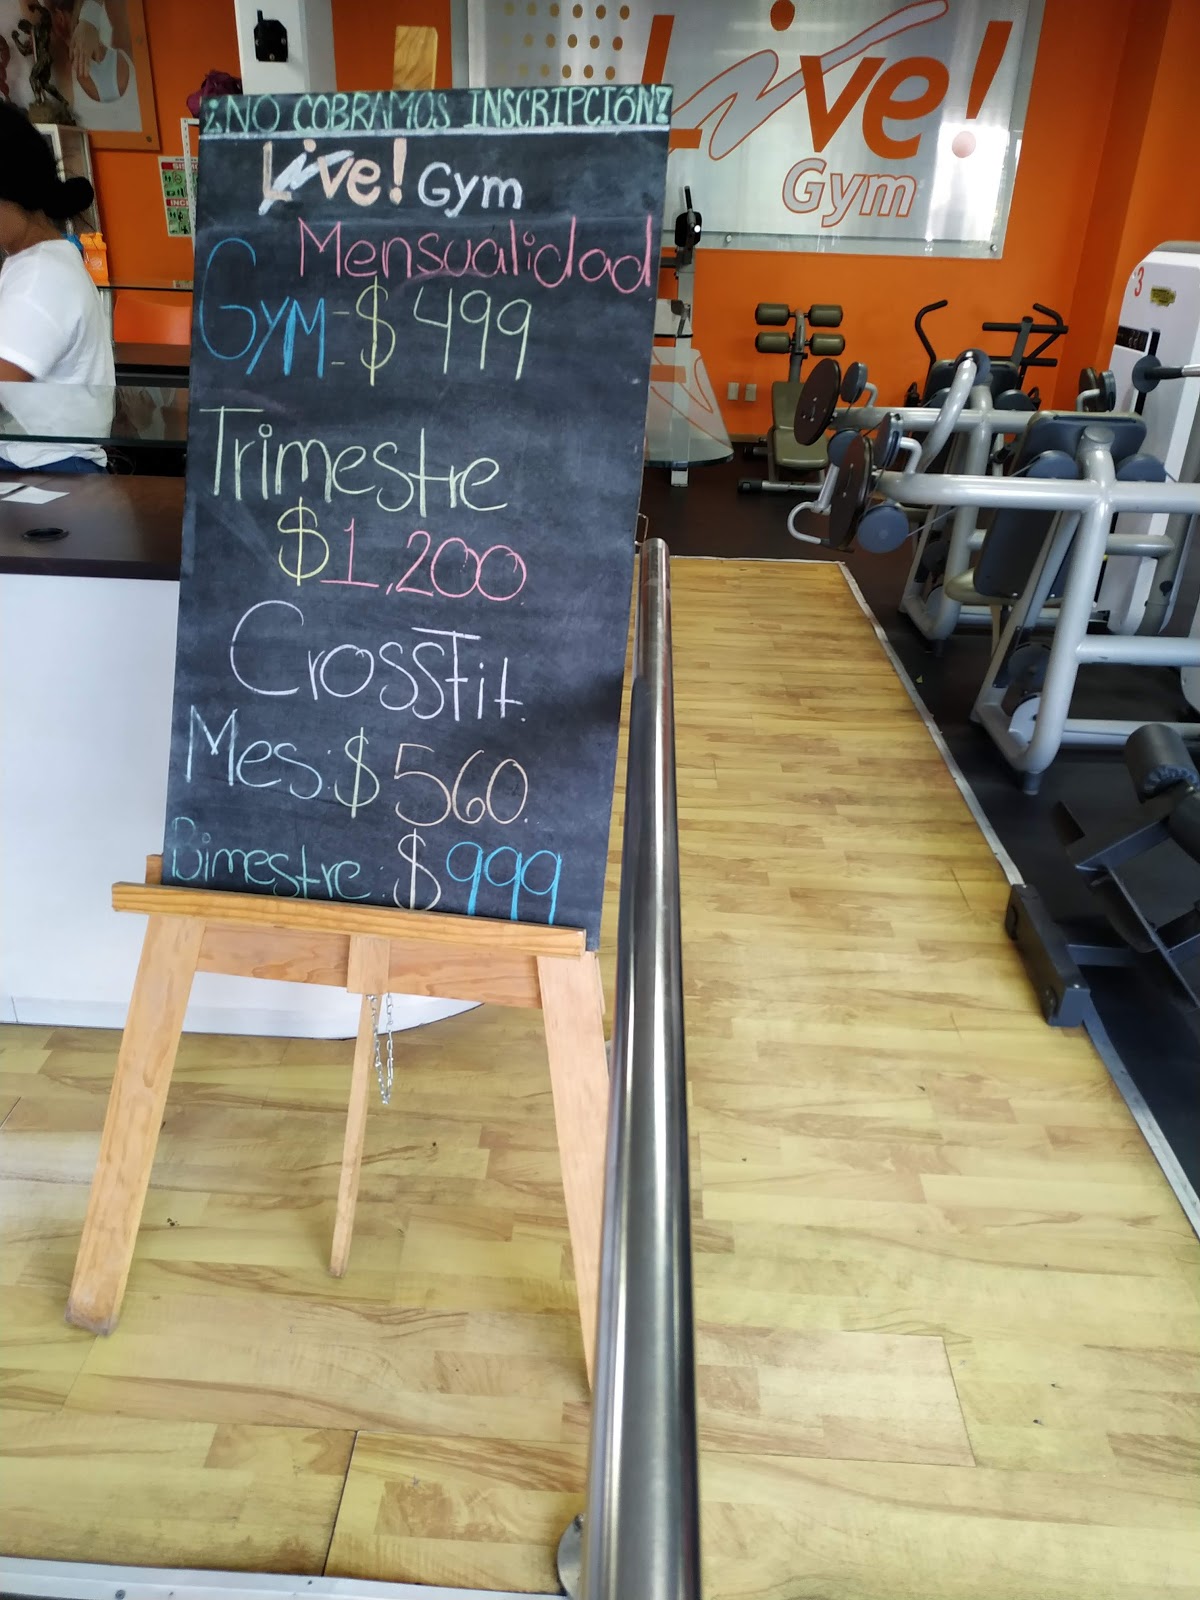 ¿NO COBRAMOS INSCRIPCIÓN?
Live! Gym
Mensualidad
Gym=$499
Trimestre
$1,200
CrossFit.
Mes:$560.
Bimestre:$999
Live!
Gym
3